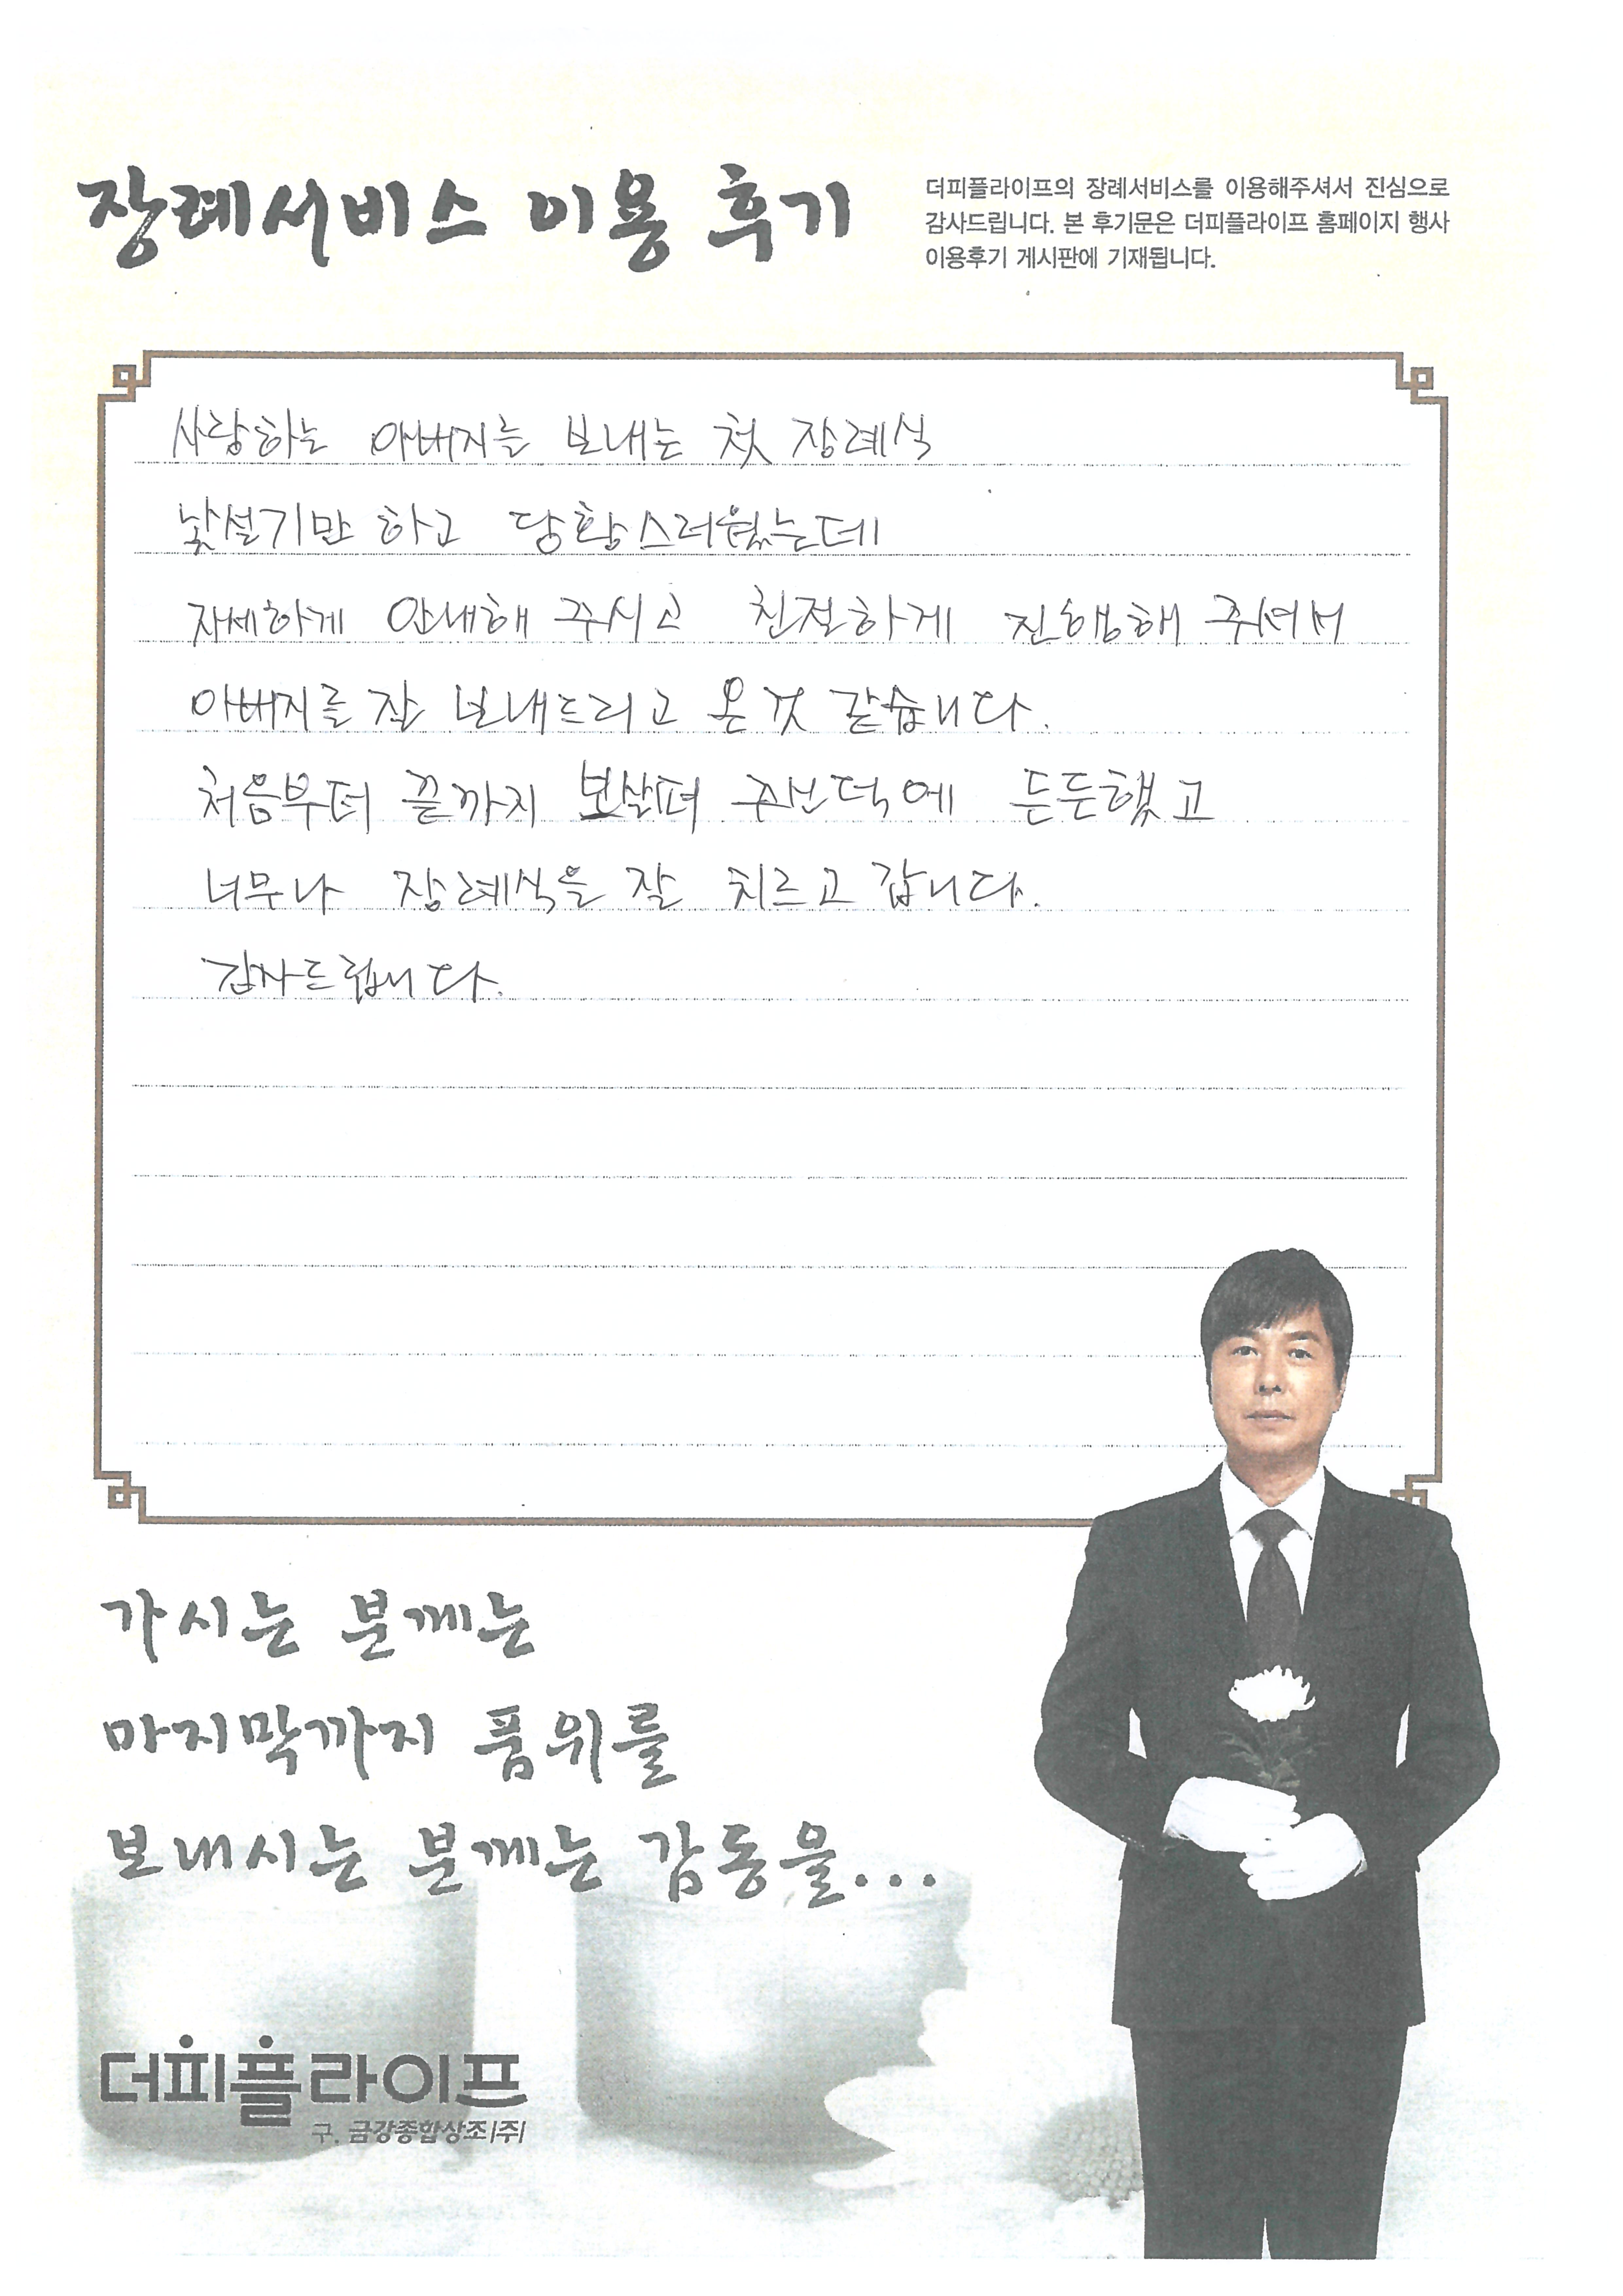 장례서비스 이용 후기
더피플라이프의 장례서비스를 이용해주셔서 진심으로
감사드립니다. 본 후기문은 더피플라이프 홈페이지 행사
이용후기 게시판에 기재됩니다.
사랑하는 아버지를 보내는 첫 장례식
낯설기만 하고 당황스러웠는데
자세하게 안내해 주시고 친절하게 진행해 주셔서
아버지를 잘 보내드리고 온것 같습니다.
처음부터 끝까지 보살펴 주신덕에 든든했고
너무나 장례식을 잘 치르고 갑니다.
감사드립니다.
가시는 분께는
마지막까지 품위를
보내시는 분께는 감동을...
더피플라이프
구. 금강종합상조(주)